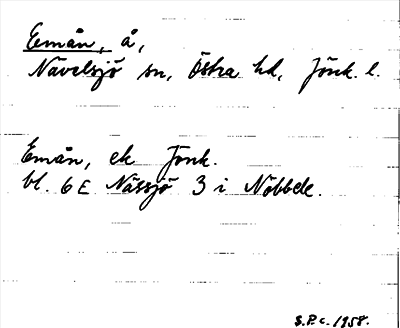 Emån, å,
Nävelsjö sn, Östra hd, Jönk. l.
Emån, ek Jönk.
bl. 6E Nässjö 3 i Nöbbele.
S.P.c. 1958.